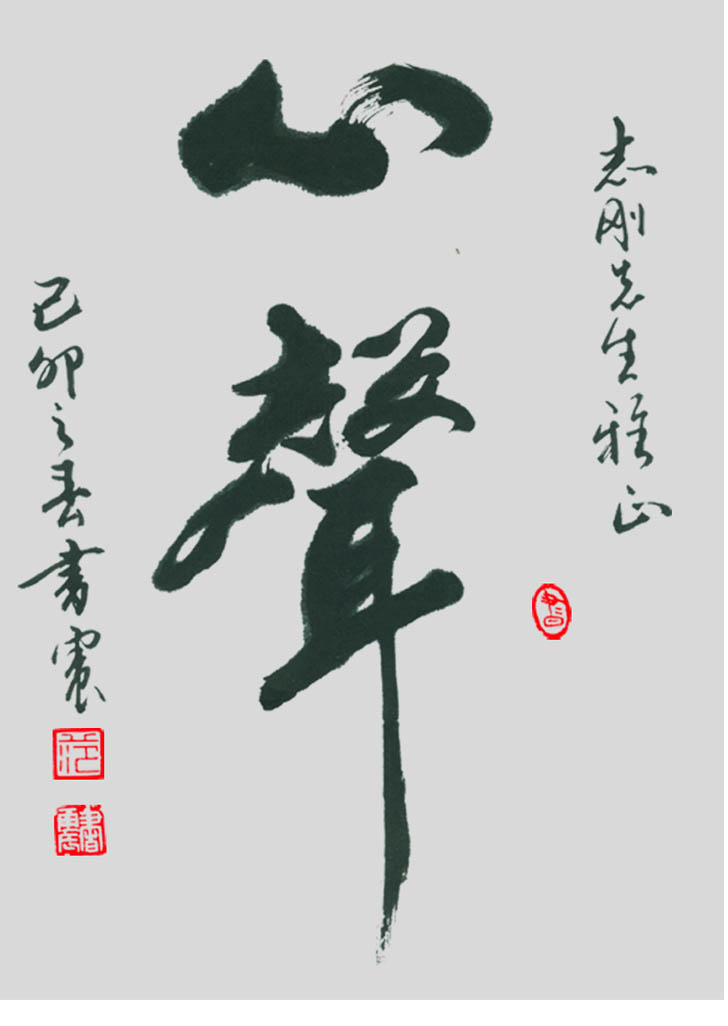 志刚先生雅正
心聲
己卯之春书震
范
書震